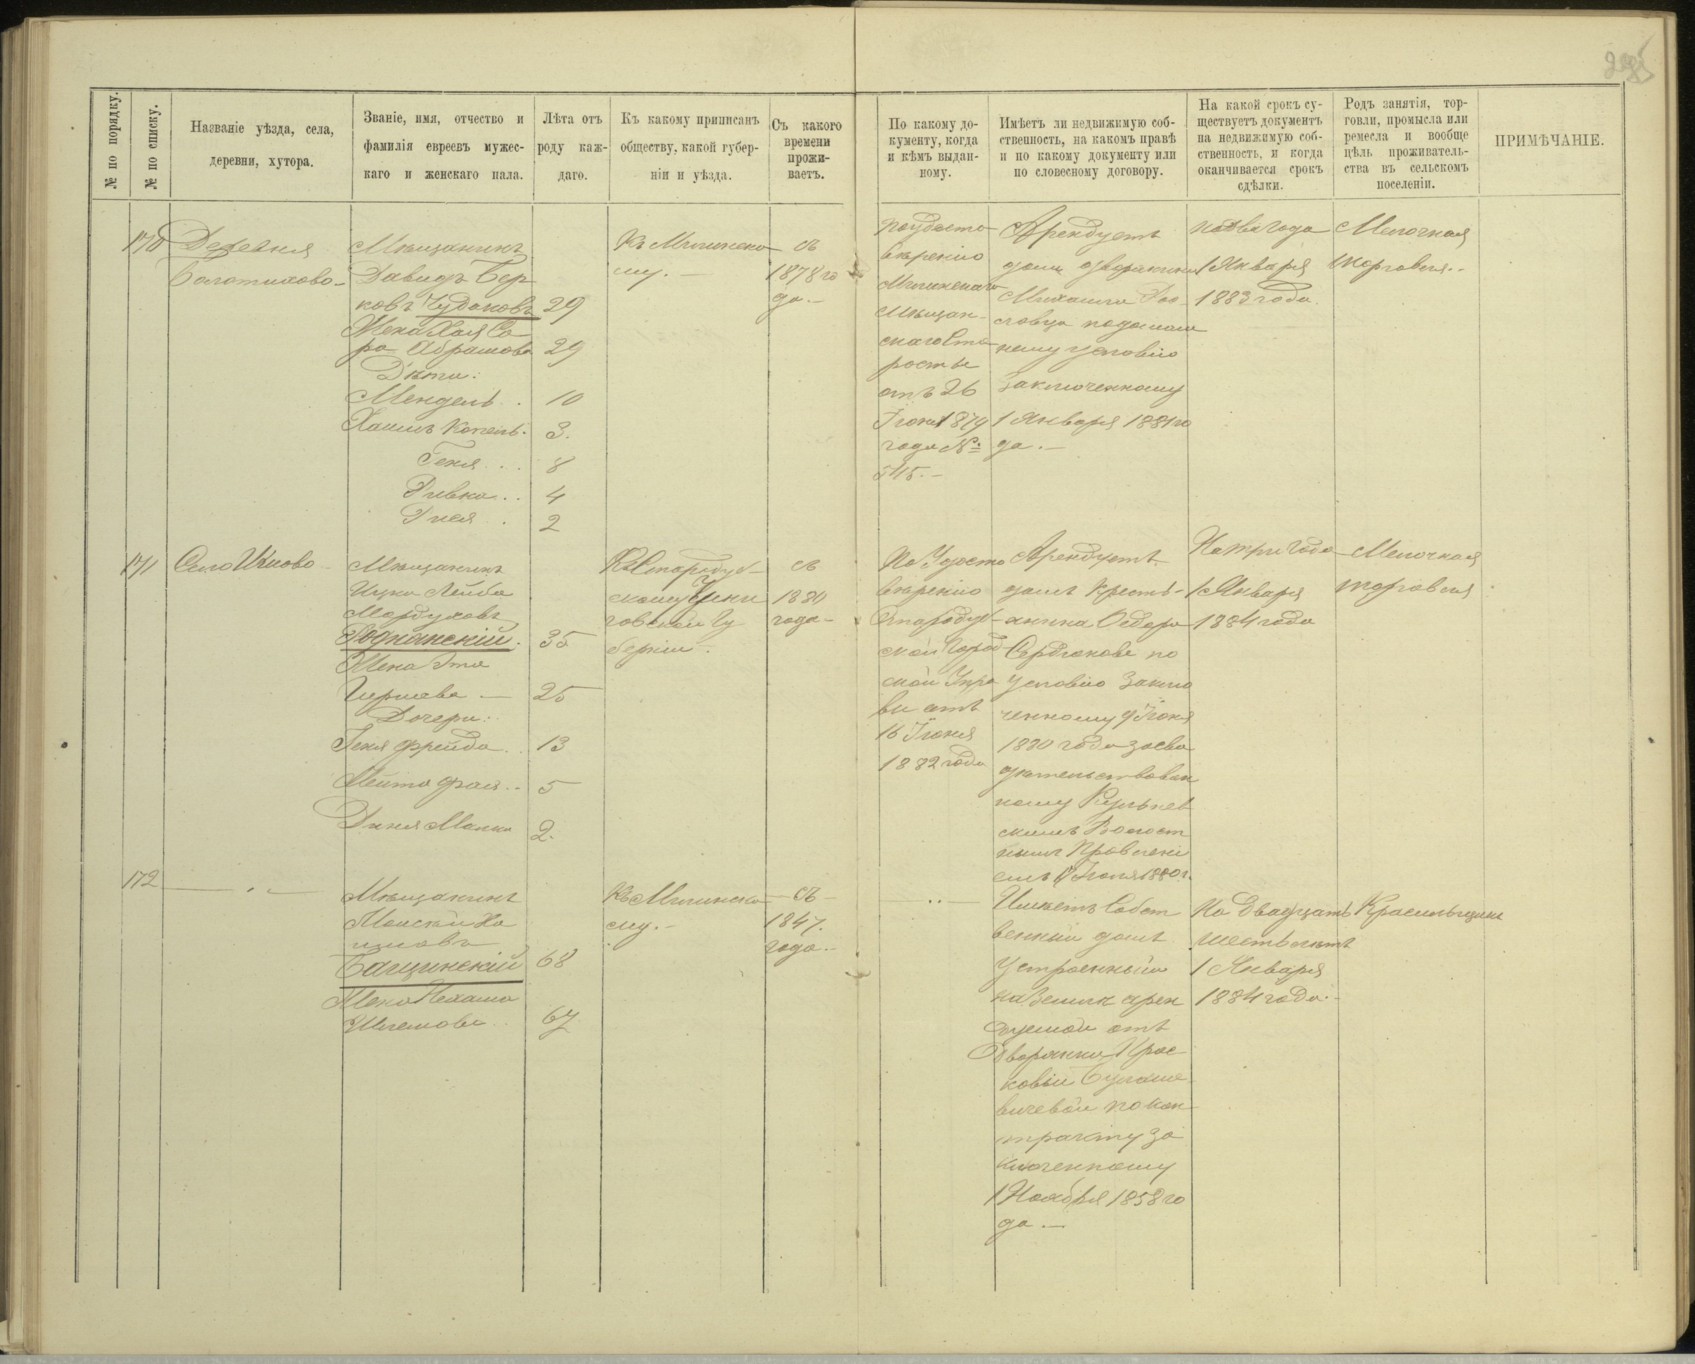 № по порядку.
№ по списку.
Названіе уѣзда, села,
деревни, хутора.
Званіе, имя, отчество и
фамилія евреевъ мужес-
каго и женскаго пала.
Лѣта отъ
роду каж-
даго.
Къ какому приписанъ
обществу, какой губер-
ніи и уѣзда.
Съ какого
времени
прожи-
ваетъ.
По какому до-
кументу, когда
и кѣмъ выдан-
ному.
Имѣетъ ли недвижимую соб-
ственность, на какомъ правѣ
и по какому документу или
по словесному договору.
На какой срокъ су-
ществуетъ документъ
на недвижимую соб-
ственность, и когда
оканчивается срокъ
сдѣлки.
Родъ занятія, тор-
говли, промысла или
ремесла и вообще
цѣль проживатель-
ства въ сельскомъ
поселеніи.
ПРИМѢЧАНІЕ.
170
Деревня
Мѣщанинъ
Давидъ Бер
ковъ Чудаковъ 29
Жена Хая Са
ра Абрамова 29
Дѣти:
Мендель . 10
Хаимъ Копель. 3.
Геня . . 8
Ривка . . 4
2
Къ Мглинско
му.-
съ
1878 го
да.-
По удосто
вѣренію
Мглинскаго
мѣщан-
скаго Ста
росты
отъ 26
Іюня 1879
года №
545.-
Арендуетъ
домъ дворянина
Михаила
словца по домаш
нему условію
заключенному
1 Января 1881 го
да.-
На два года
1 Января
1883 года.
Мелочная
торговля.-
171
Село
Мѣщанинъ
Ицка Лейба
Мордуховъ
35
Жена Эта
Гиршева - 25
Дочери:
Геня Фрейда . 13
5
2.
Къ Стародуб-
скому Черни
говской Гу
берніи.
съ
1880
года-
По Удосто
вѣренію
Стародуб-
ской Город
ской Упра
вы отъ
16 Іюня
1882 года
Арендуетъ
домъ Кресть-
янина Федора
Сердюкова по
условію заклю
ченному 9 Іюня
1880 года засви
дѣтельствован
ному
скимъ Волост
нымъ Правлені
емъ 9 Іюня 1880 г.
На три года
1 Января
1884 года
Мелочная
торговля
172
Мѣщанинъ
68
Жена Нехама
67
Къ Мглинско
му.-
съ
1847.
года.-
Имѣетъ Собст
венный домъ
устроенный
на Земли арен
дуемой отъ
Дворянки Прас
ковьи
вичевой по кон
тракту за
ключенному
1 Ноября 1858 го
да.-
На Двадцать
шесть лѣтъ
1 Января
1884 года.-
Красильщикъ